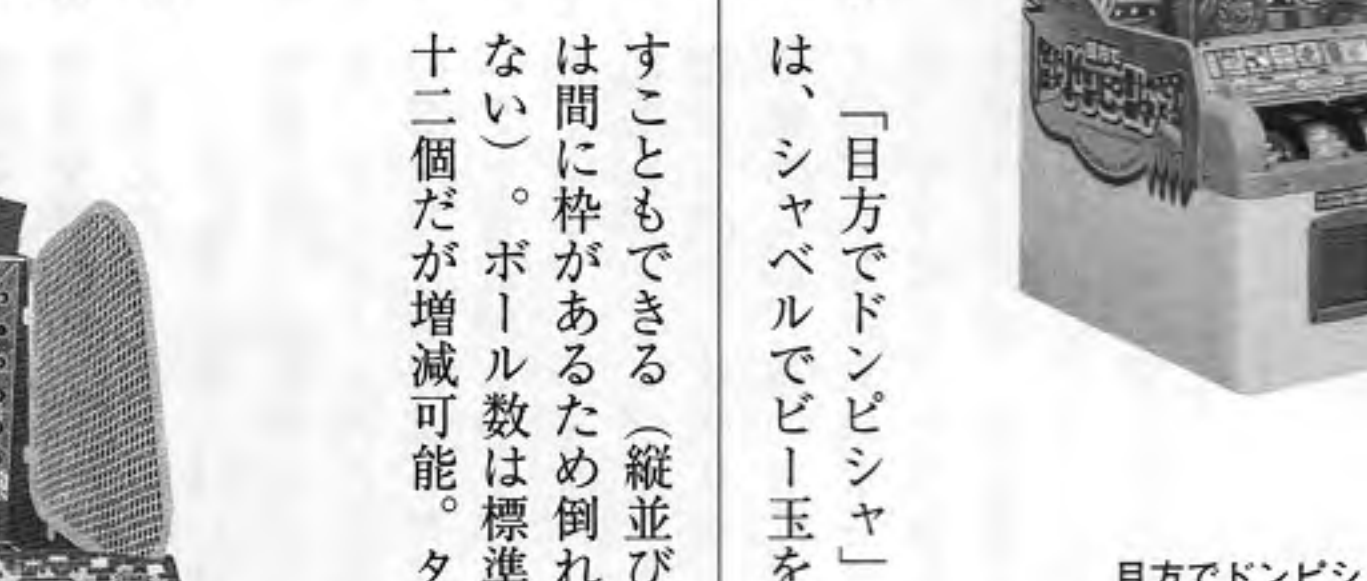 「目方でドンピシャ」
は、シャベルでビー玉を
すこともできる（縦並び
は間に枠があるため倒れ
ない）。ボール数は標準
十二個だが増減可能。タ
目方でドンピシ